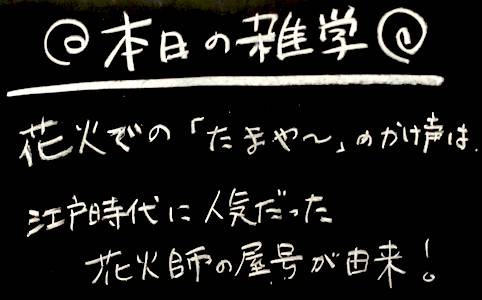 本日の雑学
花火での「たまや～」のかけ声は
江戸時代に人気だった
花火師の屋号が由来！